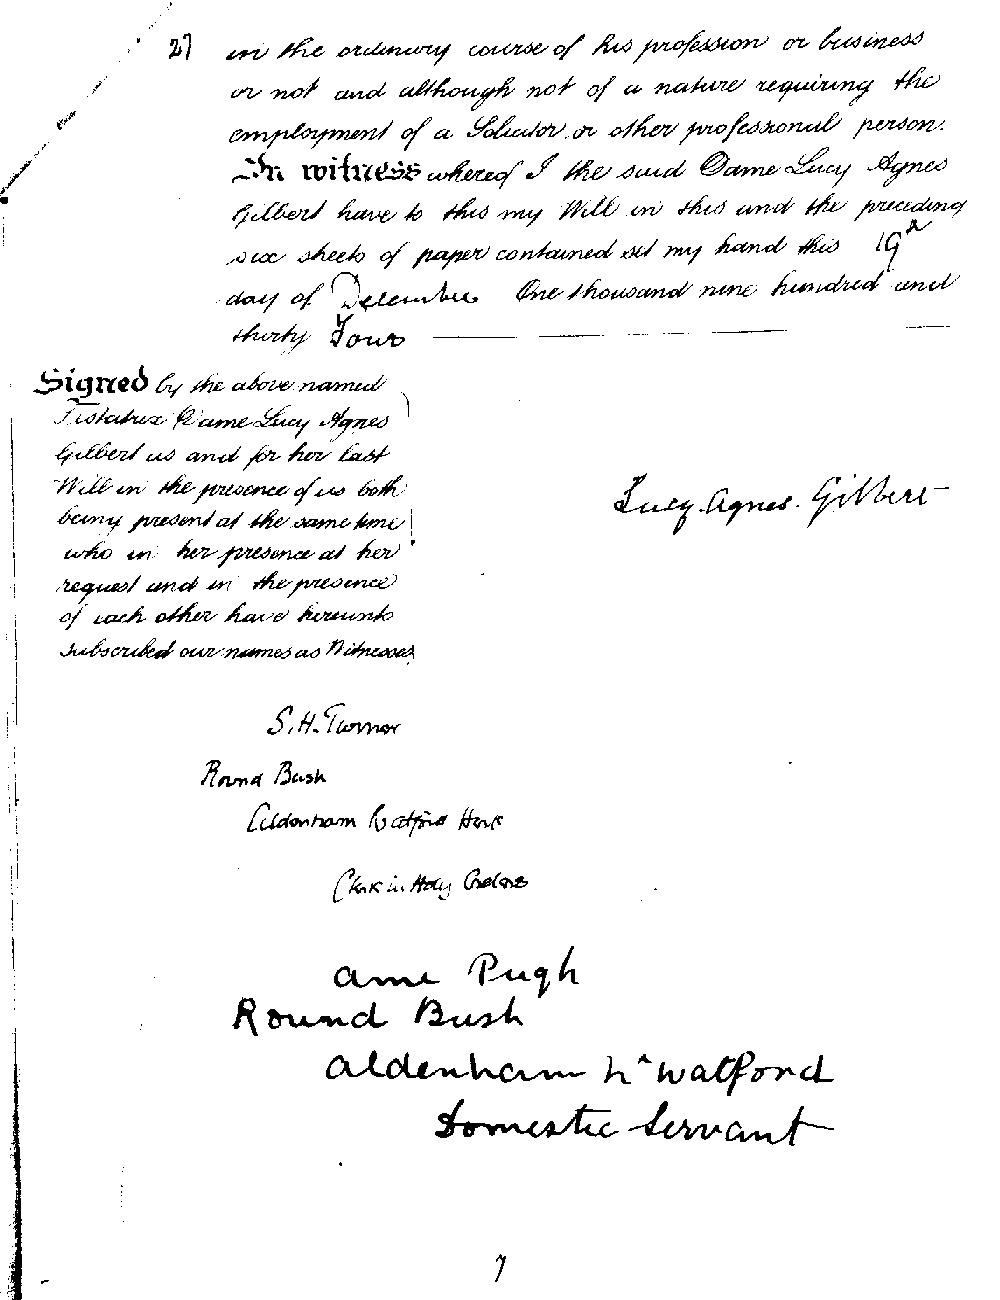 27 in the ordinary course of his profession or business
or not and although not of a nature requiring the
employment of a Solicitor or other professional person.
In witness whereof I the said Dame Lucy Agnes
Gilbert have to this my Will in this and the preceding
six sheets of paper contained set my hand this 19th
day of December One thousand nine hundred and
thirty Four
Signed by the above named
Testatrix Dame Lucy Agnes
Gilbert as and for her last
Will in the presence of us both
being present at the same time
who in her presence at her
request and in the presence
of each other have hereunto
subscribed our names as Witnesses
Lucy Agnes. Gilbert
S. H. Turnor
Round Bush
Aldenham Watford Herts
Clerk in Holy Orders
Pugh
Round Bush
Aldenham Nr Watford
Domestic Servant
7